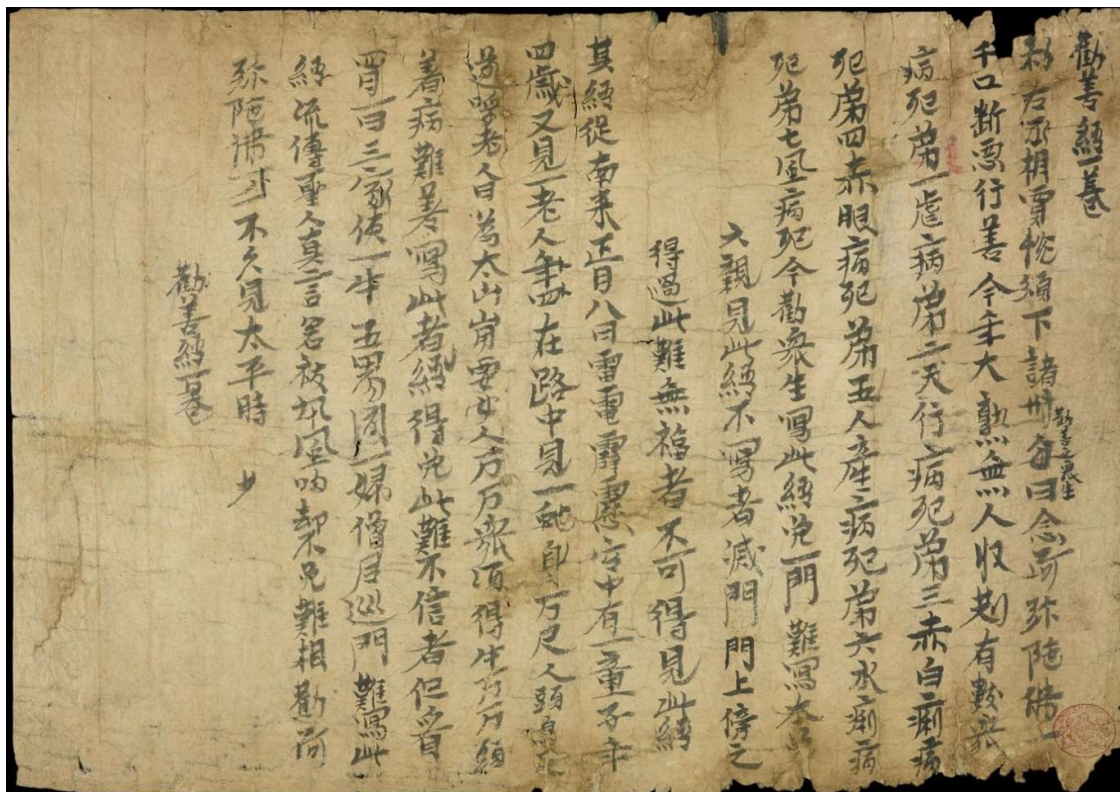 勸善經一卷
勑左丞相賈忱頒下諸州勸善衆生每日念阿弥陁佛一
千口斷惡行善今年大熟無人收刈有數般
病死第一虐病第二天行病死第三赤白痢病
死第四赤眼病死第五人產亡病死第六水痢病
死第七風病死今勸衆生寫此經免一門難寫六
六親見此經不寫者滅門門上傍之
得過此難無福者不可得見此經
其經從南來正月八日雷電霹靂空中有一童子年
四歲又見一老人在路中見一蛇身万尺人頭鳥足
遂呼老人曰為太山崩要女人万万衆須得牛万万頭
著病難差寫此者經得免此難不信者但看
四月一日三家使一牛五男同一婦僧尼巡門難寫此
經流傳聖人真言名被風吹却不免難相勸阿
弥陁佛不久見太平時
勸善經一卷